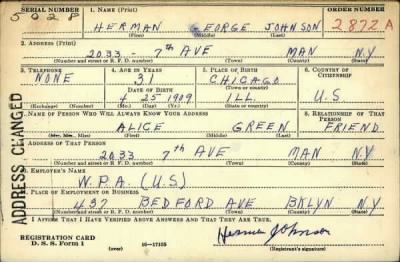 SERIAL NUMBER 1. NAME (Print) ORDER NUMBER
5028 HERMAN GEORGE JOHNSON 2872A
(First) (Middle) (Last)
2. ADDRESS (Print)
2033 - 7th AVE MAN N.Y
(Number and street or R. F. D. number) (Town) (County) (State)
3. TELEPHONE 4. AGE IN YEARS 5. PLACE OF BIRTH 6. COUNTRY OF CITIZENSHIP
NONE 31 CHICAGO
DATE OF BIRTH (Town or county)
4 25 1909 ILL. U.S
(Exchange) (Number) (Mo.) (Day) (Yr.) (State or country)
7. NAME OF PERSON WHO WILL ALWAYS KNOW YOUR ADDRESS 8. RELATIONSHIP OF THAT PERSON
ALICE GREEN FRIEND
(Mr., Mrs., Miss) (First) (Middle) (Last)
9. ADDRESS OF THAT PERSON
2033 7th AVE MAN N.Y
(Number and street or R. F. D. number) (Town) (County) (State)
10. EMPLOYER'S NAME
W.P.A (U.S)
11. PLACE OF EMPLOYMENT OR BUSINESS
437 BEDFORD AVE BKLYN N.Y
(Number and street or R. F. D. number) (Town) (County) (State)
I AFFIRM THAT I HAVE VERIFIED ABOVE ANSWERS AND THAT THEY ARE TRUE.
REGISTRATION CARD
D. S. S. Form 1 (over) 16-17105 Herman Johnson
(Registrant's signature)
ADDRESS CHANGED